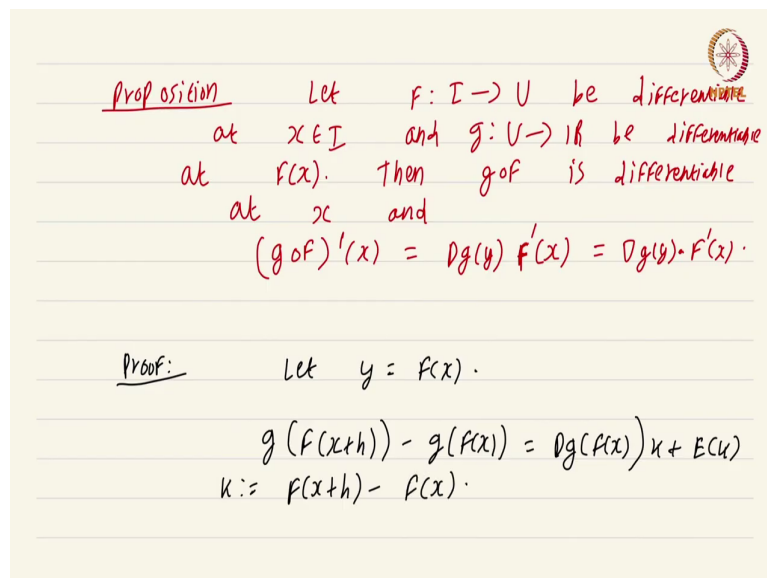 Proposition Let F: I → U be differentiable
at x ∈ I and g: U → ℝ be differentiable
at F(x). Then g∘F is differentiable
at x and
(g∘F)'(x) = Dg(y) F'(x) = Dg(y)·F'(x).
Proof: Let y = F(x).
g(F(x+h)) - g(F(x)) = Dg(F(x))k + E(k)
k := F(x+h) - F(x).